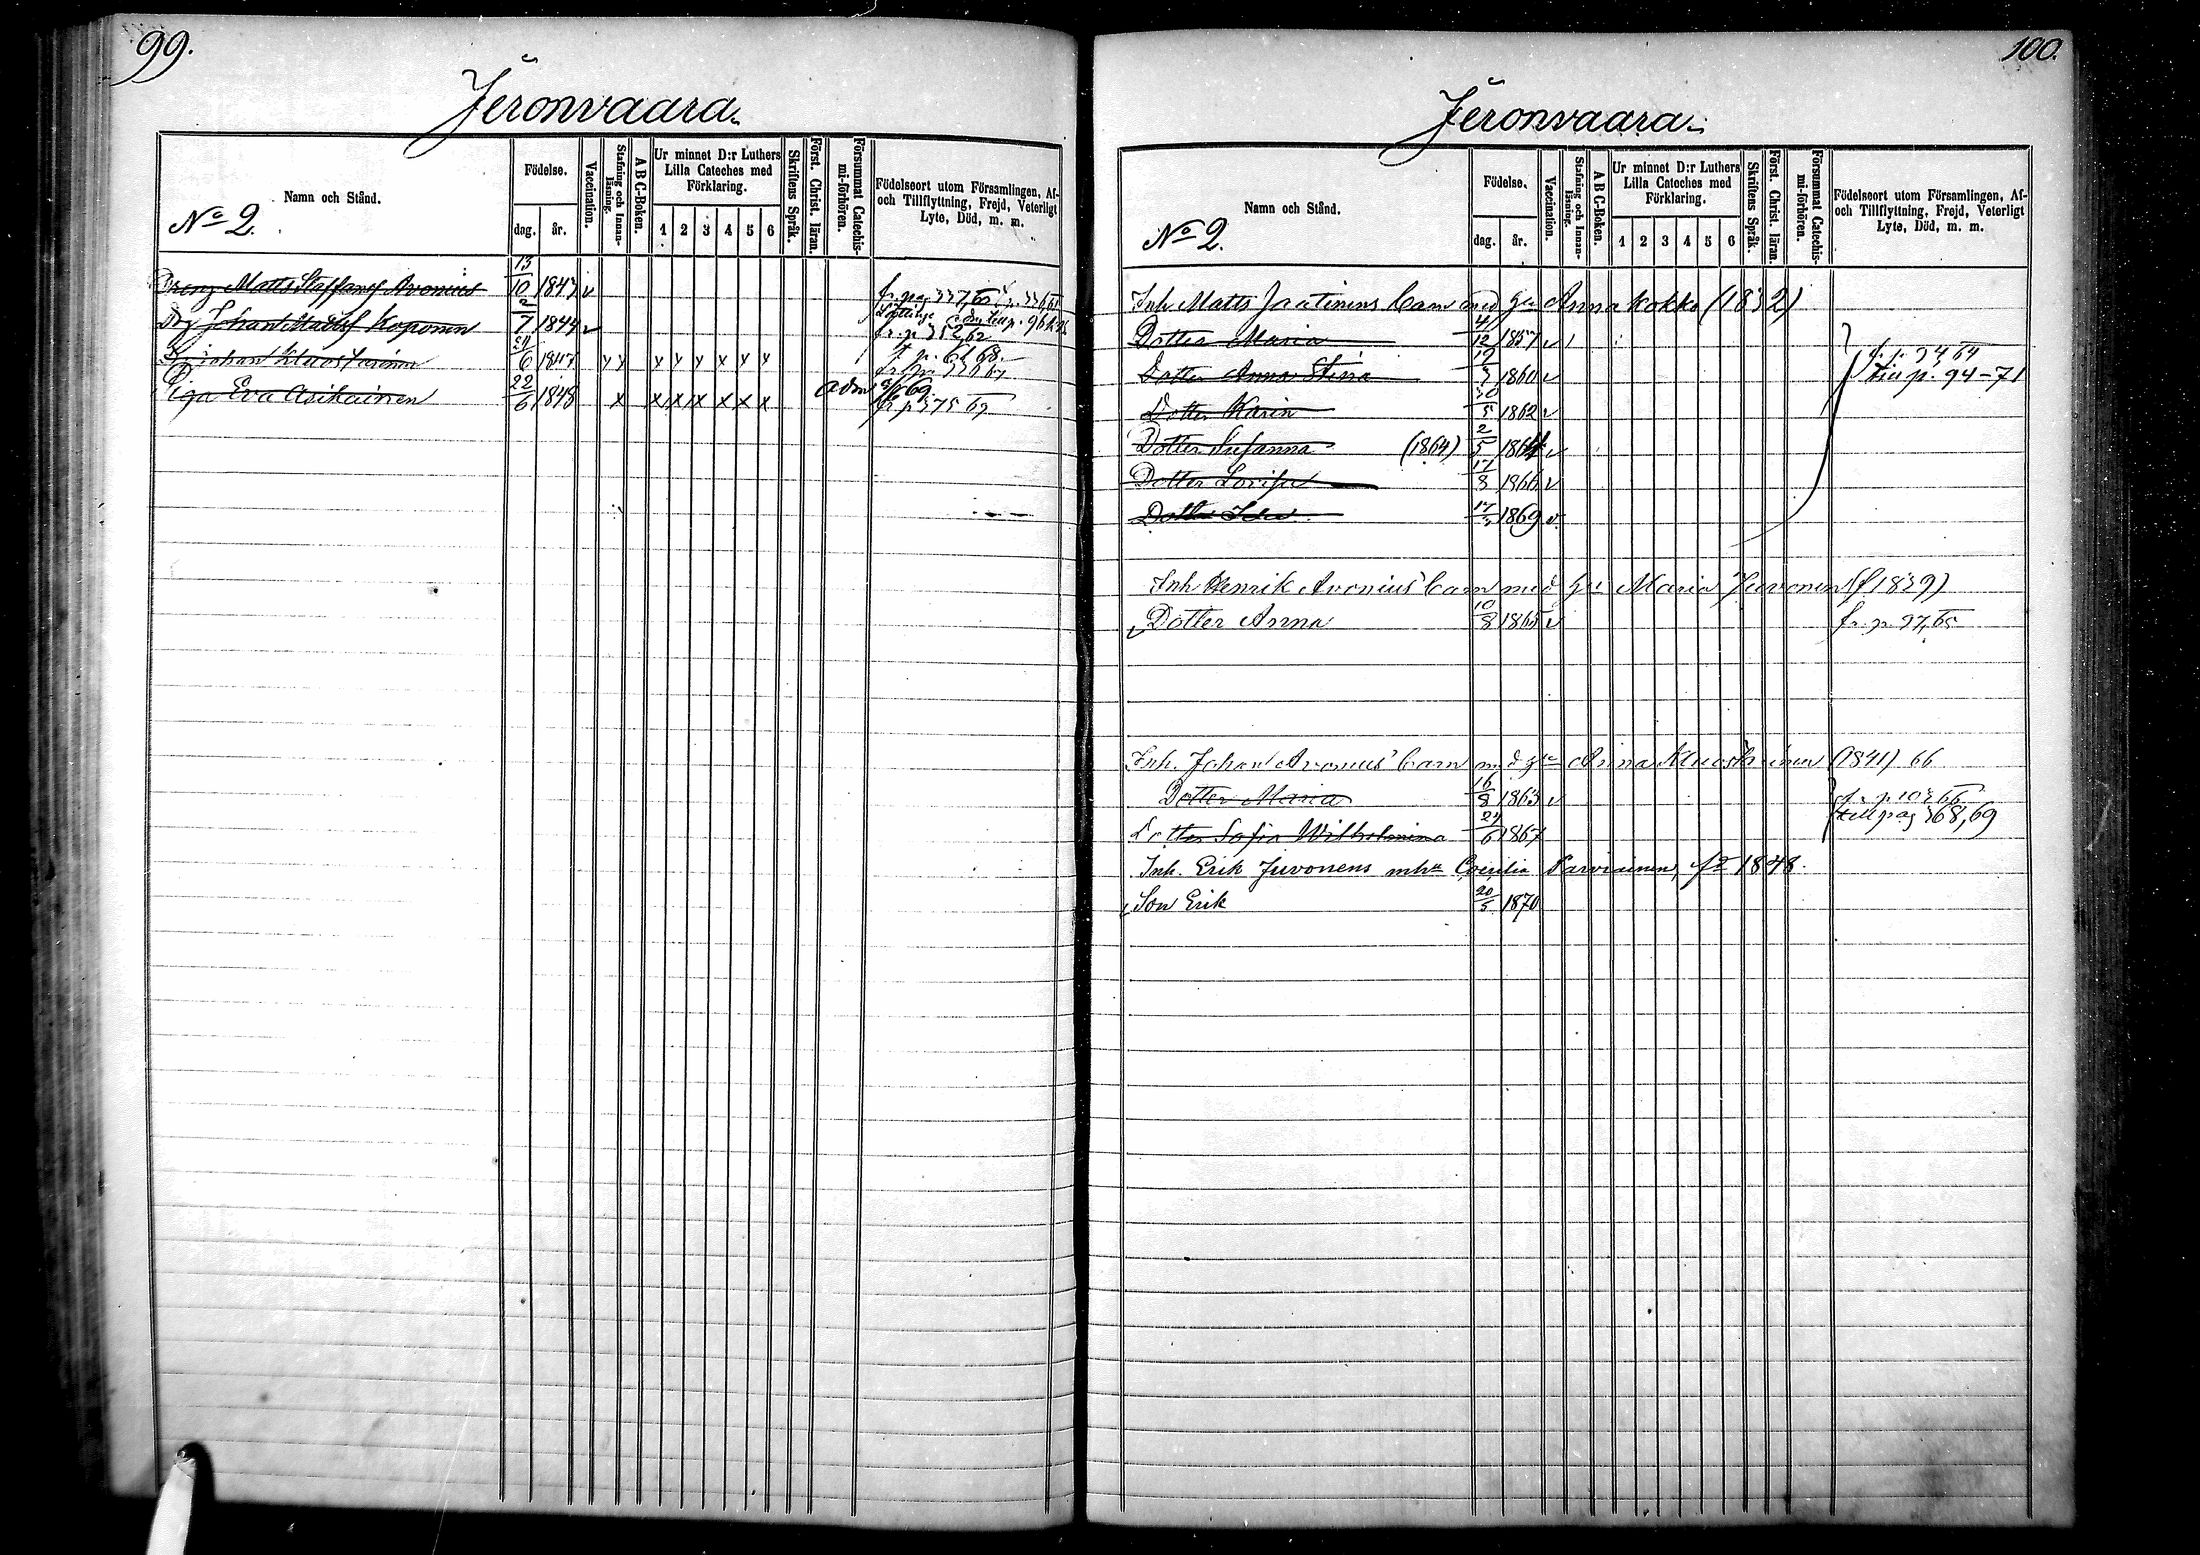 99.
Jeronvaara.
Namn och Stånd.
No 2.
Födelse.
dag.
år.
Vaccination.
Stafning och Innan-läsning.
A B C-Boken.
Ur minnet D:r Luthers
Lilla Cateches med
Förklaring.
1 2 3 4 5 6
Skriftens Språk.
Först. Christ. läran.
Försummat Catechis-mi-förhören.
Födelseort utom Församlingen, Af-
och Tillflyttning, Frejd, Veterligt
Lyte, Död, m. m.
Matts Staffansf Avonius 13/10 1843 v
Drg Johan Mattsf Koponen 2/7 1844 v fr. p. 352,62
Johan 6 1847 x x x x x x x x
Piga Eva Asikainen 22/6 1848 x x x x x x x adm 69
fr p 375 69
100.
Jeronvaara.
Namn och Stånd.
No 2.
Födelse.
dag.
år.
Vaccination.
Stafning och Innan-läsning.
A B C-Boken.
Ur minnet D:r Luthers
Lilla Cateches med
Förklaring.
1 2 3 4 5 6
Skriftens Språk.
Först. Christ. läran.
Försummat Catechis-mi-förhören.
Födelseort utom Församlingen, Af-
och Tillflyttning, Frejd, Veterligt
Lyte, Död, m. m.
Inh. Matts Jaatinens barn med Anna Kokko (1832)
Dotter Maria 4/12 1857 v
Dotter Anna Stina 1860 v till p. 94-71
Dotter Karin 1862 v
Dotter Susanna (1864) 2/5 1864 v
Dotter Lovisa 17/8 1866 v
Dotter Ida 1869 v
Inh Henrik Avonius' barn med Maria Juvonen (f 1839)
Dotter Anna 10/8 1865 v fr. p. 97,65
Inh. Johan Avonius' barn med Anna (1841) 66
Dotter Maria 16/8 1863 v
Dotter Sofia Wilhelmina 24/6 1867 till pag 368,69
Inh. Erik Juvonens mhu Coecilia Parviainen, 1848.
Son Erik 20/5 1870